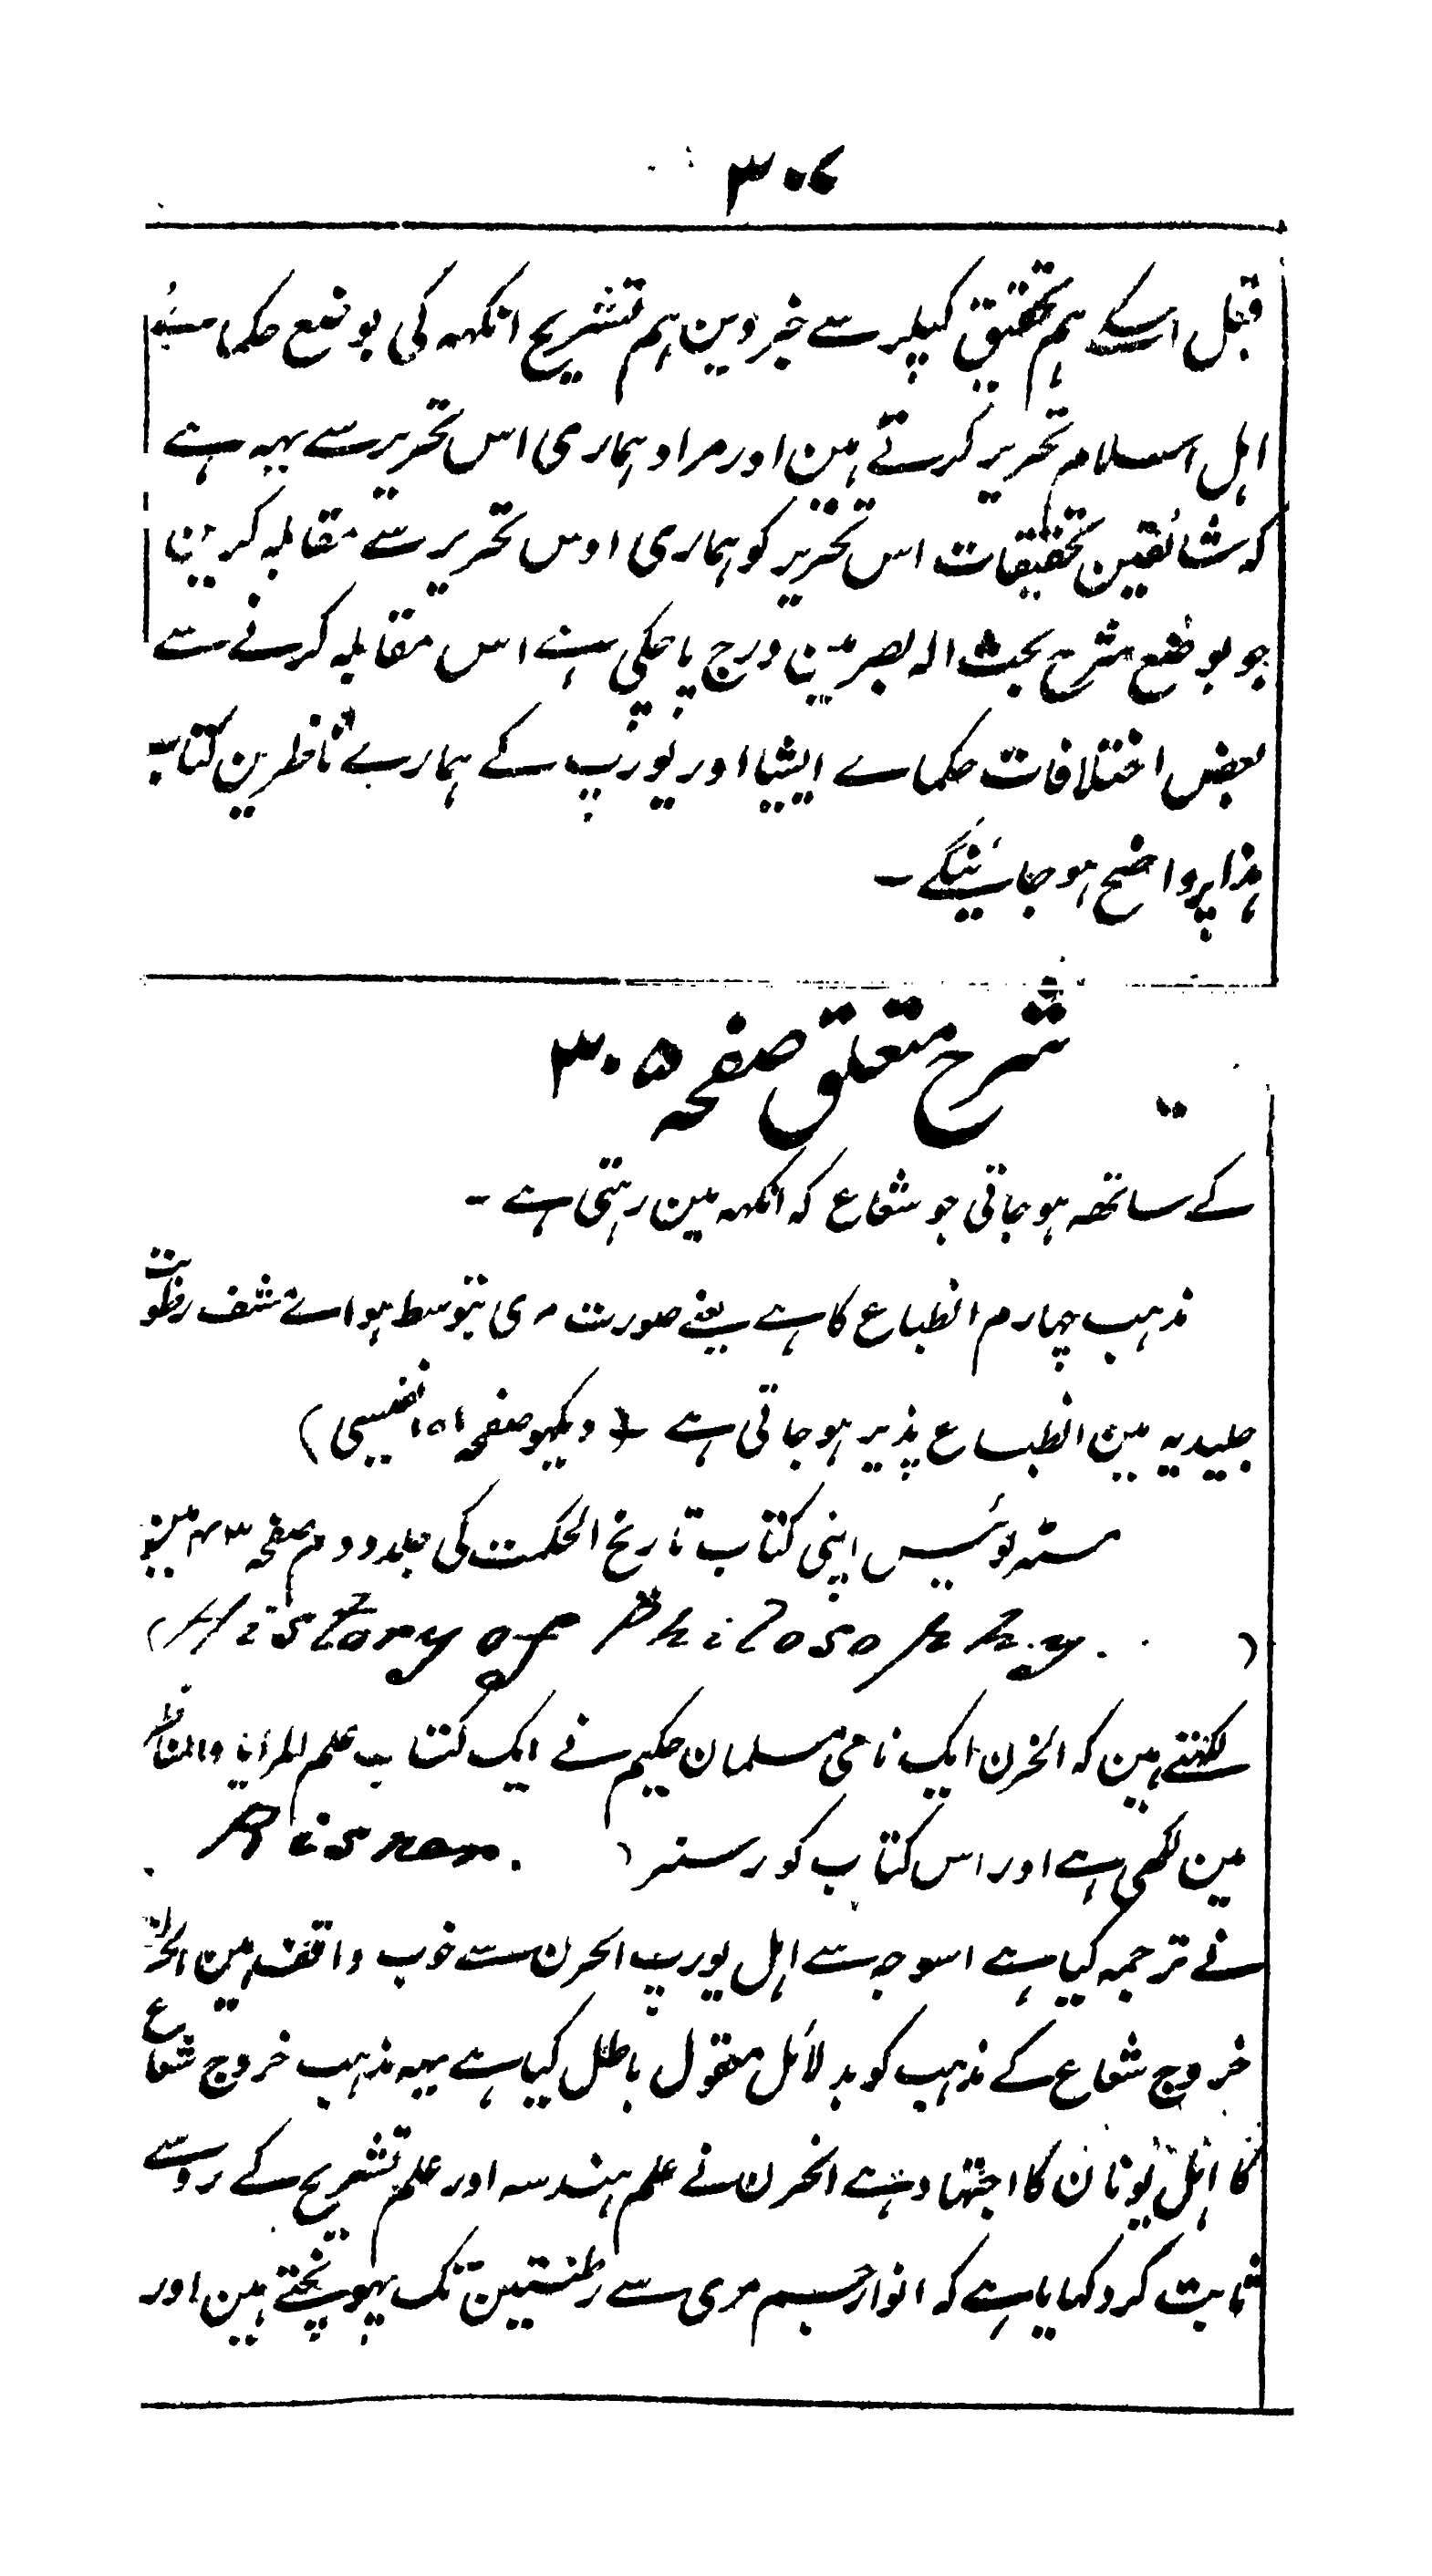 ۳۰۷
قبل اسکے ہم تحقیق کیپلر سے خبر دین ہم تشریح انکہہ کی بوضع حکما
اہل اسلام تحریر کرتے ہین اور مراد ہماری اس تحریر سے یہہ ہے
کہ شائقین تحقیقات اس تحریر کو ہماری اوس تحریر سے مقابلہ کرین
جو بوضع شرح بحث الہ بصر مین درج پاچکی ہے اس مقابلہ کرنے سے
بعض اختلافات حکماے ایشیا اور یورپ کے ہمارے ناظرین کتاب
ہذا پر واضح ہو جائینگے ۔
شرح متعلق صفحہ ۳۰۵
کے ساتھہ ہو جاتی جو شعاع کہ انکہہ مین رہتی ہے ۔
مذہب چہارم انطباع کا ہے یعنے صورت مری بتوسط ہواے شف رطوبت
جلیدیہ مین انطباع پذیر ہو جاتی ہے ( دیکہو صفحہ ۱۵۱ نفیسی )
مسٹر لوئیس اپنی کتاب تاریخ الحکمت کی جلد دوم صفحہ ۳۴ مین
( History of Philosophy. )
لکہتے ہین کہ الخزن ایک نامی مسلمان حکیم نے ایک کتاب علم المرایا والمناظر
مین لکھی ہے اور اس کتاب کو رسنر ( Risner.
نے ترجمہ کیا ہے اسوجہ سے اہل یورپ الخزن سے خوب واقف ہین الخزن
خروج شعاع کے مذہب کو بدلائل معقول باطل کیا ہے یہہ مذہب خروج شعاع
کا اہل یونان کا اجتہاد ہے الخزن نے علم ہندسہ اور علم تشریح کے روسے
ثابت کر دکہایا ہے کہ انوار جسم مری سے رطنتین تک پہونچتے ہین اور